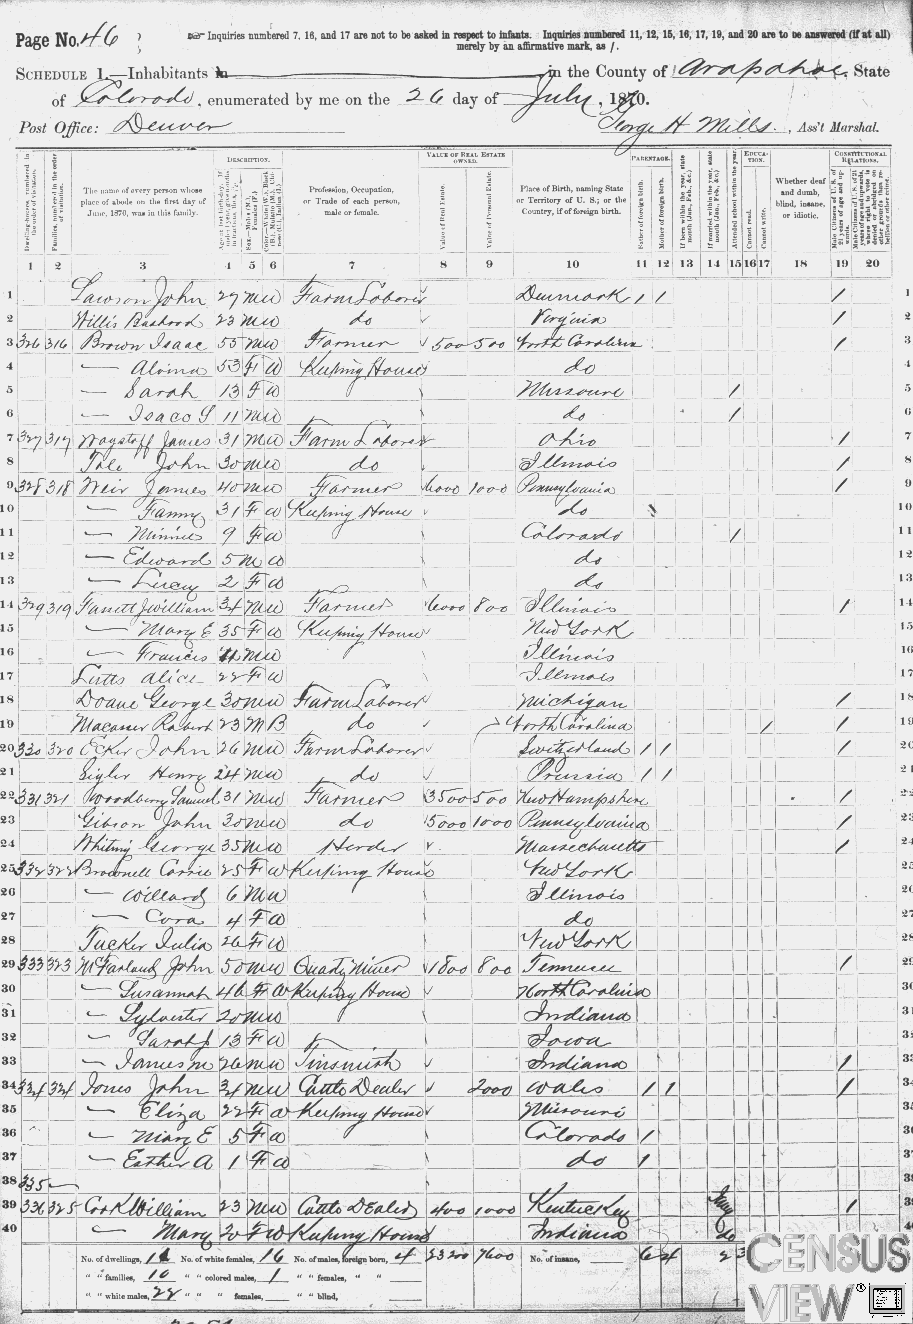 Page No. 46
Inquiries numbered 7, 16, and 17 are not to be asked in respect to infants. Inquiries numbered 11, 12, 15, 16, 17, 19, and 20 are to be answered (if at all)
merely by an affirmative mark, as /.
SCHEDULE 1.—Inhabitants in in the County of Arapahoe, State
of Colorado, enumerated by me on the 26 day of July, 1870.
Post Office: Denver George H Mills., Ass't Marshal.
DESCRIPTION. VALUE OF REAL ESTATE OWNED. PARENTAGE. EDUCATION. CONSTITUTIONAL RELATIONS.
Dwelling-houses, numbered in the order of visitation. Families, numbered in the order of visitation. The name of every person whose place of abode on the first day of June, 1870, was in this family. Profession, Occupation, or Trade of each person, male or female. Value of Real Estate. Value of Personal Estate. Place of Birth, naming State or Territory of U. S.; or the Country, if of foreign birth. Father of foreign birth. Mother of foreign birth. If born within the year, state month (Jan., Feb., &c.) If married within the year, state month (Jan., Feb., &c.) Attended school within the year. Cannot read. Cannot write. Whether deaf and dumb, blind, insane, or idiotic.
1 2 3 4 5 6 7 8 9 10 11 12 13 14 15 16 17 18 19 20
1 Lawson John 27 M W Farm Laborer Denmark / / / 1
2 Willis 23 M W do Virginia / 2
3 326 316 Brown Isaac 55 M W Farmer 500 500 North Carolina / 3
4 — Alvina 53 F W Keeping House do 4
5 — Sarah 13 F W Missouri / 5
6 — Isaac S 11 M W do / 6
7 327 317 Wagstaff James 31 M W Farm Laborer Ohio / 7
8 Tole John 30 M W do Illinois / 8
9 328 318 Weir James 40 M W Farmer 6000 1000 Pennsylvania / 9
10 — Fanny 31 F W Keeping House do 10
11 — Minnie 9 F W Colorado / 11
12 — Edward 5 M W do 12
13 — Lucy 2 F W do 13
14 329 319 J William 34 M W Farmer 6000 800 Illinois / 14
15 — Mary E 35 F W Keeping House New York 15
16 — Francis 11 M W Illinois 16
17 Lutts Alice 22 F W Illinois 17
18 Doane George 30 M W Farm Laborer Michigan / 18
19 Robert 23 M B do North Carolina / / 19
20 330 320 Ecker John 26 M W Farm Laborer Switzerland / / / 20
21 Sigler Henry 24 M W do Prussia / / 21
22 331 321 Woodberry Samuel 31 M W Farmer 3500 500 New Hampshire / 22
23 Gibson John 30 M W do 5000 1000 Pennsylvania / 23
24 Whiting George 35 M W Herder Massachusetts / 24
25 332 322 Brownell Carrie 25 F W Keeping House New York 25
26 — Willard 6 M W Illinois 26
27 — Cora 4 F W do 27
28 Tucker Julia 26 F W New York 28
29 333 323 McFarland John 50 M W Quartz Miner 1800 800 Tennessee / 29
30 — Susannah 46 F W Keeping House North Carolina 30
31 — Sylvester 20 M W Indiana 31
32 — Sarah J 13 F W Iowa 32
33 — James M 26 M W Tinsmith Indiana / 33
34 334 324 Jones John 34 M W Cattle Dealer 2000 Wales / / / 34
35 — Eliza 22 F W Keeping House Missouri 35
36 — Mary E 5 F W Colorado / 36
37 — Esther A 1 F W do / 37
38 335 — 38
39 336 325 Cook William 23 M W Cattle Dealer 400 1000 Kentucky / 39
40 — Mary 20 F W Keeping House Indiana do 40
No. of dwellings, 11 No. of white females, 16 No. of males, foreign born, 4 23200 7600 No. of insane, 6 4 2 3
" " families, 10 " " colored males, 1 " " females, " "
" " white males, 22 " " " females, " " blind,
CENSUS
VIEW ®